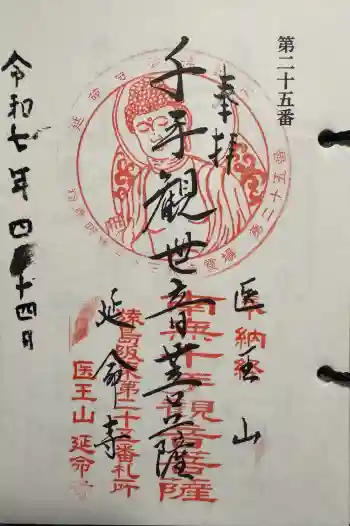 第二十五番
奉拝
医王山
千手観世音菩薩
延命寺
令和七年四月十四日
第二十五番
奉納経
南無千手観音菩薩
第二十五番札所
医王山 延命寺